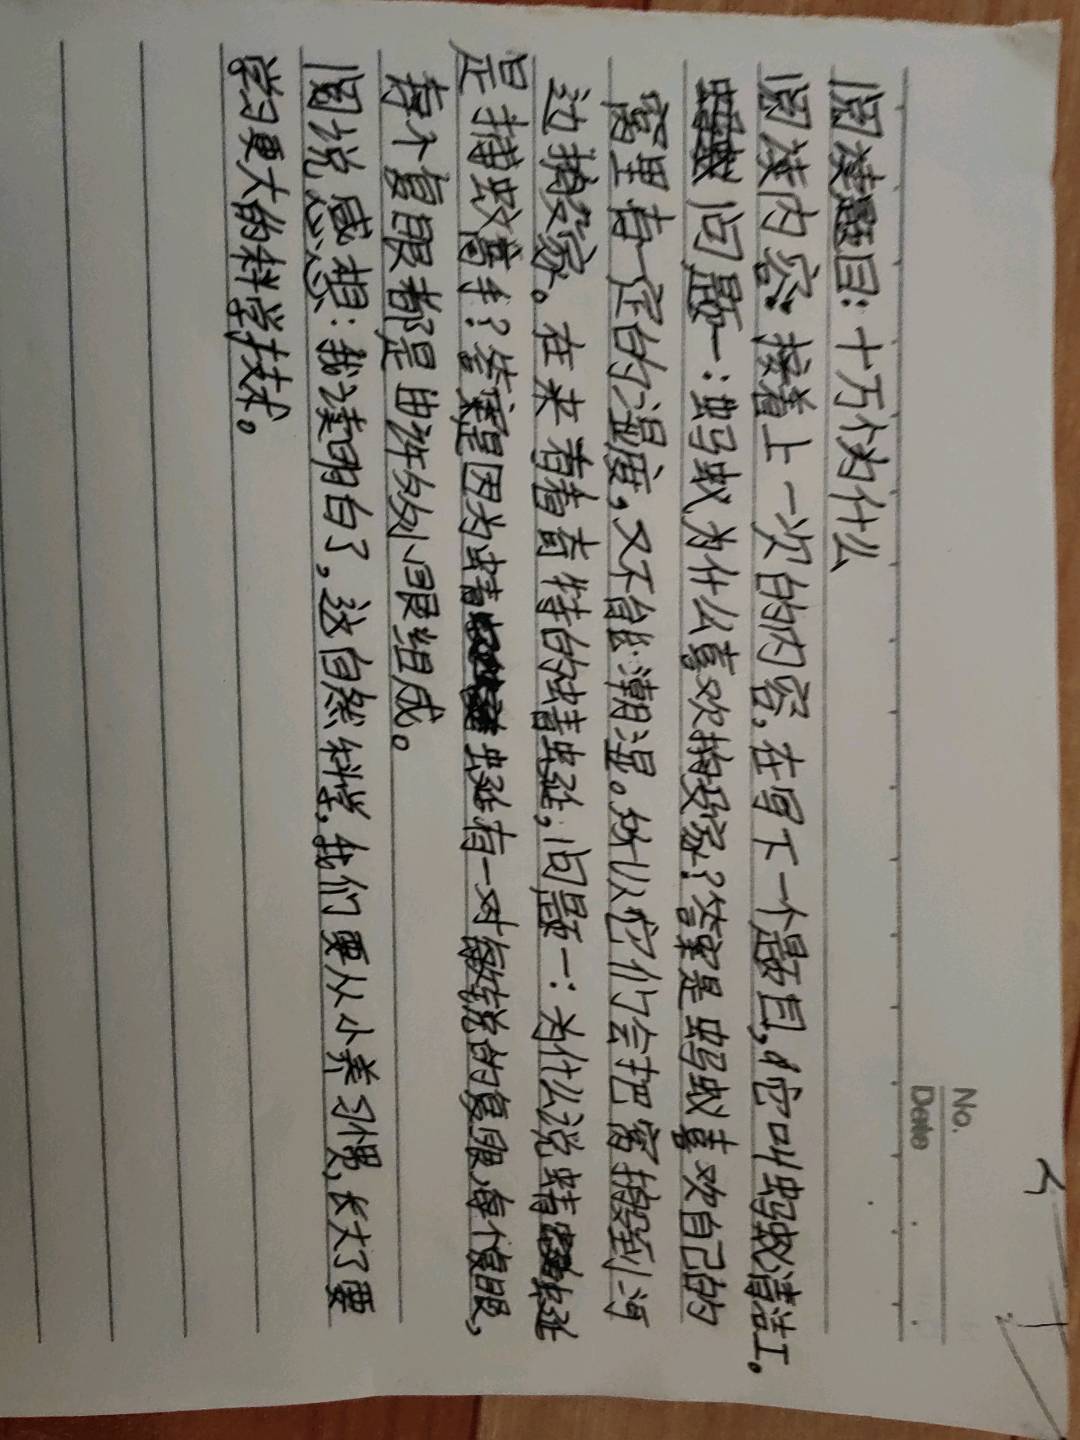 No.
Date
阅读题目：十万个为什么
阅读内容：接着上一次的内容。在写下一个题目，它叫蚂蚁清洁工。
问题一：蚂蚁为什么喜欢搬家？答案是蚂蚁喜欢自己的
窝里有一定的湿度，又不能潮湿。所以它们会把窝搬到河
边搬家。在来看看奇特的蜻蜓，问题一：为什么说蜻蜓
是捕蚊高手？答案是因为蜻蜓有一对敏锐的复眼，每个复眼，
每个复眼都是由许多小眼组成。
阅说感想：我读明白了，这自然科学，我们要从小养习惯，长大了要
学习更大的科学技术。